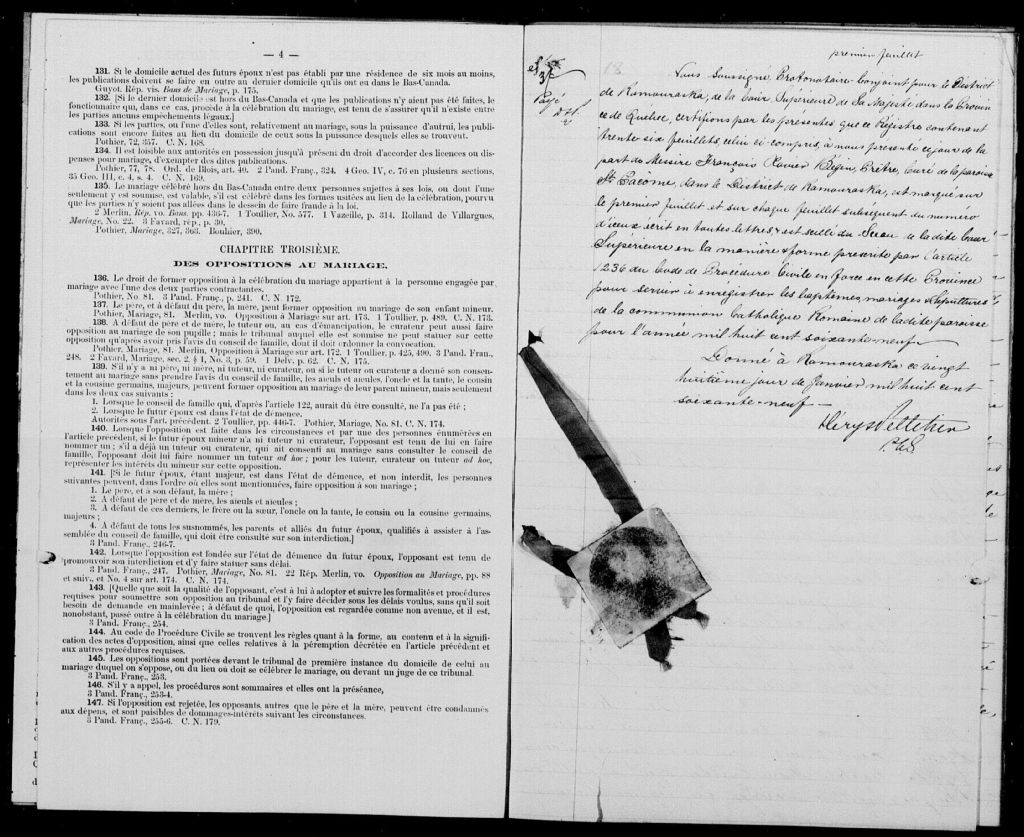 — 4 —
131. Si le domicile actuel des futurs époux n'est pas établi par une résidence de six mois au moins,
les publications doivent se faire en outre au dernier domicile qu'ils ont eu dans le Bas-Canada.
Guyot. Rép. vis. Bans de Mariage, p. 175.
132. [Si le dernier domicile est hors du Bas-Canada et que les publications n'y aient pas été faites, le
fonctionnaire qui, dans ce cas, procède à la célébration du mariage, est tenu de s'assurer qu'il n'existe entre
les parties aucuns empêchements légaux.]
133. Si les parties, ou l'une d'elles sont, relativement au mariage, sous la puissance d'autrui, les publi-
cations sont encore faites au lieu du domicile de ceux sous la puissance desquels elles se trouvent.
Pothier, 72, 357. C. N. 168.
134. Il est loisible aux autorités en possession jusqu'à présent du droit d'accorder des licences ou dis-
penses pour mariage, d'exempter des dites publications.
Pothier, 77, 78. Ord. de Blois, art. 40. 2 Pand. Franç., 324. 4 Geo. IV, c. 76 en plusieurs sections,
35 Geo. III, c. 4, s. 4. C. N. 169.
135. Le mariage célébré hors du Bas-Canada entre deux personnes sujettes à ses lois, ou dont l'une
seulement y est soumise, est valable, s'il est célébré dans les formes usitées au lieu de la célébration, pourvu
que les parties n'y soient pas allées dans le dessein de faire fraude à la loi.
2 Merlin, Rép. vo. Bans. pp. 436-7. 1 Toullier, No. 577. 1 Vazeille, p. 314. Rolland de Villargues,
Mariage, No. 22. 3 Favard, rép., p. 30.
Pothier, Mariage, 327, 363. Bouhier, 390.
CHAPITRE TROISIÈME.
DES OPPOSITIONS AU MARIAGE.
136. Le droit de former opposition à la célébration du mariage appartient à la personne engagée par
mariage avec l'une des deux parties contractantes.
Pothier, No. 81. 3 Pand. Franç., p. 241. C. N. 172.
137. Le père, et à défaut du père, la mère, peut former opposition au mariage de son enfant mineur.
Pothier, Mariage, 81. Merlin, vo. Opposition à Mariage sur art. 173. 1 Toullier, p. 489. C. N. 173.
138. A défaut de père et de mère, le tuteur ou, au cas d'émancipation, le curateur peut aussi faire
opposition au mariage de son pupille ; mais le tribunal auquel elle est soumise ne peut statuer sur cette
opposition qu'après avoir pris l'avis du conseil de famille, dont il doit ordonner la convocation.
Pothier, Mariage, 81. Merlin, Opposition à Mariage sur art. 172. 1 Toullier, p. 425, 490. 3 Pand. Fran.,
248. 2 Favard, Mariage, sec. 2. § 1, No. 3, p. 59. 1 Delv. p. 62. C. N. 175.
139. S'il n'y a ni père, ni mère, ni tuteur, ni curateur, ou si le tuteur ou curateur a donné son consen-
tement au mariage sans prendre l'avis du conseil de famille, les aïeuls et aïeules, l'oncle et la tante, le cousin
et la cousine germains, majeurs, peuvent former opposition au mariage de leur parent mineur, mais seulement
dans les deux cas suivants :
1. Lorsque le conseil de famille qui, d'après l'article 122, aurait dû être consulté, ne l'a pas été ;
2. Lorsque le futur époux est dans l'état de démence.
Autorités sous l'art. précédent. 2 Toullier, pp. 446-7. Pothier, Mariage, No. 81. C. N. 174.
140. Lorsque l'opposition est faite dans les circonstances et par une des personnes énumérées en
l'article précédent, si le futur époux mineur n'a ni tuteur ni curateur, l'opposant est tenu de lui en faire
nommer un ; s'il a déjà un tuteur ou curateur, qui ait consenti au mariage sans consulter le conseil de
famille, l'opposant doit lui faire nommer un tuteur ad hoc ; pour les tuteur, curateur ou tuteur ad hoc,
représenter les intérêts du mineur sur cette opposition.
141. [Si le futur époux, étant majeur, est dans l'état de démence, et non interdit, les personnes
suivantes peuvent, dans l'ordre où elles sont mentionnées, faire opposition à son mariage ;
1. Le père, et à son défaut, la mère ;
2. A défaut de père et de mère, les aïeuls et aïeules ;
3. A défaut de ces derniers, le frère ou la sœur, l'oncle ou la tante, le cousin ou la cousine germains,
majeurs ;
4. A défaut de tous les susnommés, les parents et alliés du futur époux, qualifiés à assister à l'as-
semblée du conseil de famille, qui doit être consulté sur son interdiction.]
3 Pand. Franç., 246-7.
142. Lorsque l'opposition est fondée sur l'état de démence du futur époux, l'opposant est tenu de
promouvoir son interdiction et d'y faire statuer sans délai.
3 Pand. Franç., 247. Pothier, Mariage, No. 81. 22 Rép. Merlin, vo. Opposition au Mariage, pp. 88
et suiv., et No. 4 sur art. 174. C. N. 174.
143. [Quelle que soit la qualité de l'opposant, c'est à lui à adopter et suivre les formalités et procédures
requises pour soumettre son opposition au tribunal et l'y faire décider sous les délais voulus, sans qu'il soit
besoin de demande en mainlevée ; à défaut de quoi, l'opposition est regardée comme non avenue, et il est,
nonobstant, passé outre à la célébration du mariage.]
3 Pand. Franç., 254.
144. Au code de Procédure Civile se trouvent les règles quant à la forme, au contenu et à la signifi-
cation des actes d'opposition, ainsi que celles relatives à la péremption décrétée en l'article précédent et
aux autres procédures requises.
145. Les oppositions sont portées devant le tribunal de première instance du domicile de celui au
mariage duquel on s'oppose, ou du lieu où doit se célébrer le mariage, ou devant un juge de ce tribunal.
3 Pand. Franç., 253.
146. S'il y a appel, les procédures sont sommaires et elles ont la préséance,
3 Pand. Franç., 253-4.
147. Si l'opposition est rejetée, les opposants, autres que le père et la mère, peuvent être condamnés
aux dépens, et sont paisibles de dommages-intérêts suivant les circonstances.
3 Pand. Franç., 255-6. C. N. 179.
premier feuillet
Payé
Nous Soussigné Protonotaire Conjoint pour le District
de Kamouraska, de la Cour Supérieure de Sa Majesté dans la Provin
ce de Québec, certifions par les présentes que ce Régistre contenant
trente six feuillets celui ci compris, a nous présenté ce jour de la
part de Messire François Xavier Bégin, Prêtre, Curé de la paroisse
St. Pacôme, dans le District de Kamouraska, est marqué sur
le premier feuillet et sur chaque feuillet subséquent du numéro
d'iceux écrit en toutes lettres & est scellé du Sceau de la dite Cour
Supérieure en la manière & forme prescrite par l'article
1236 du Code de Procédure Civile en force en cette Province
pour servir à enregistrer les baptêmes, mariages & sépultures
de la communion Catholique Romaine de la dite paroisse
pour l'année mil huit cent soixante neuf
Donné à Kamouraska ce vingt
huitième jour de Janvier mil huit cent
soixante-neuf
P.C.S